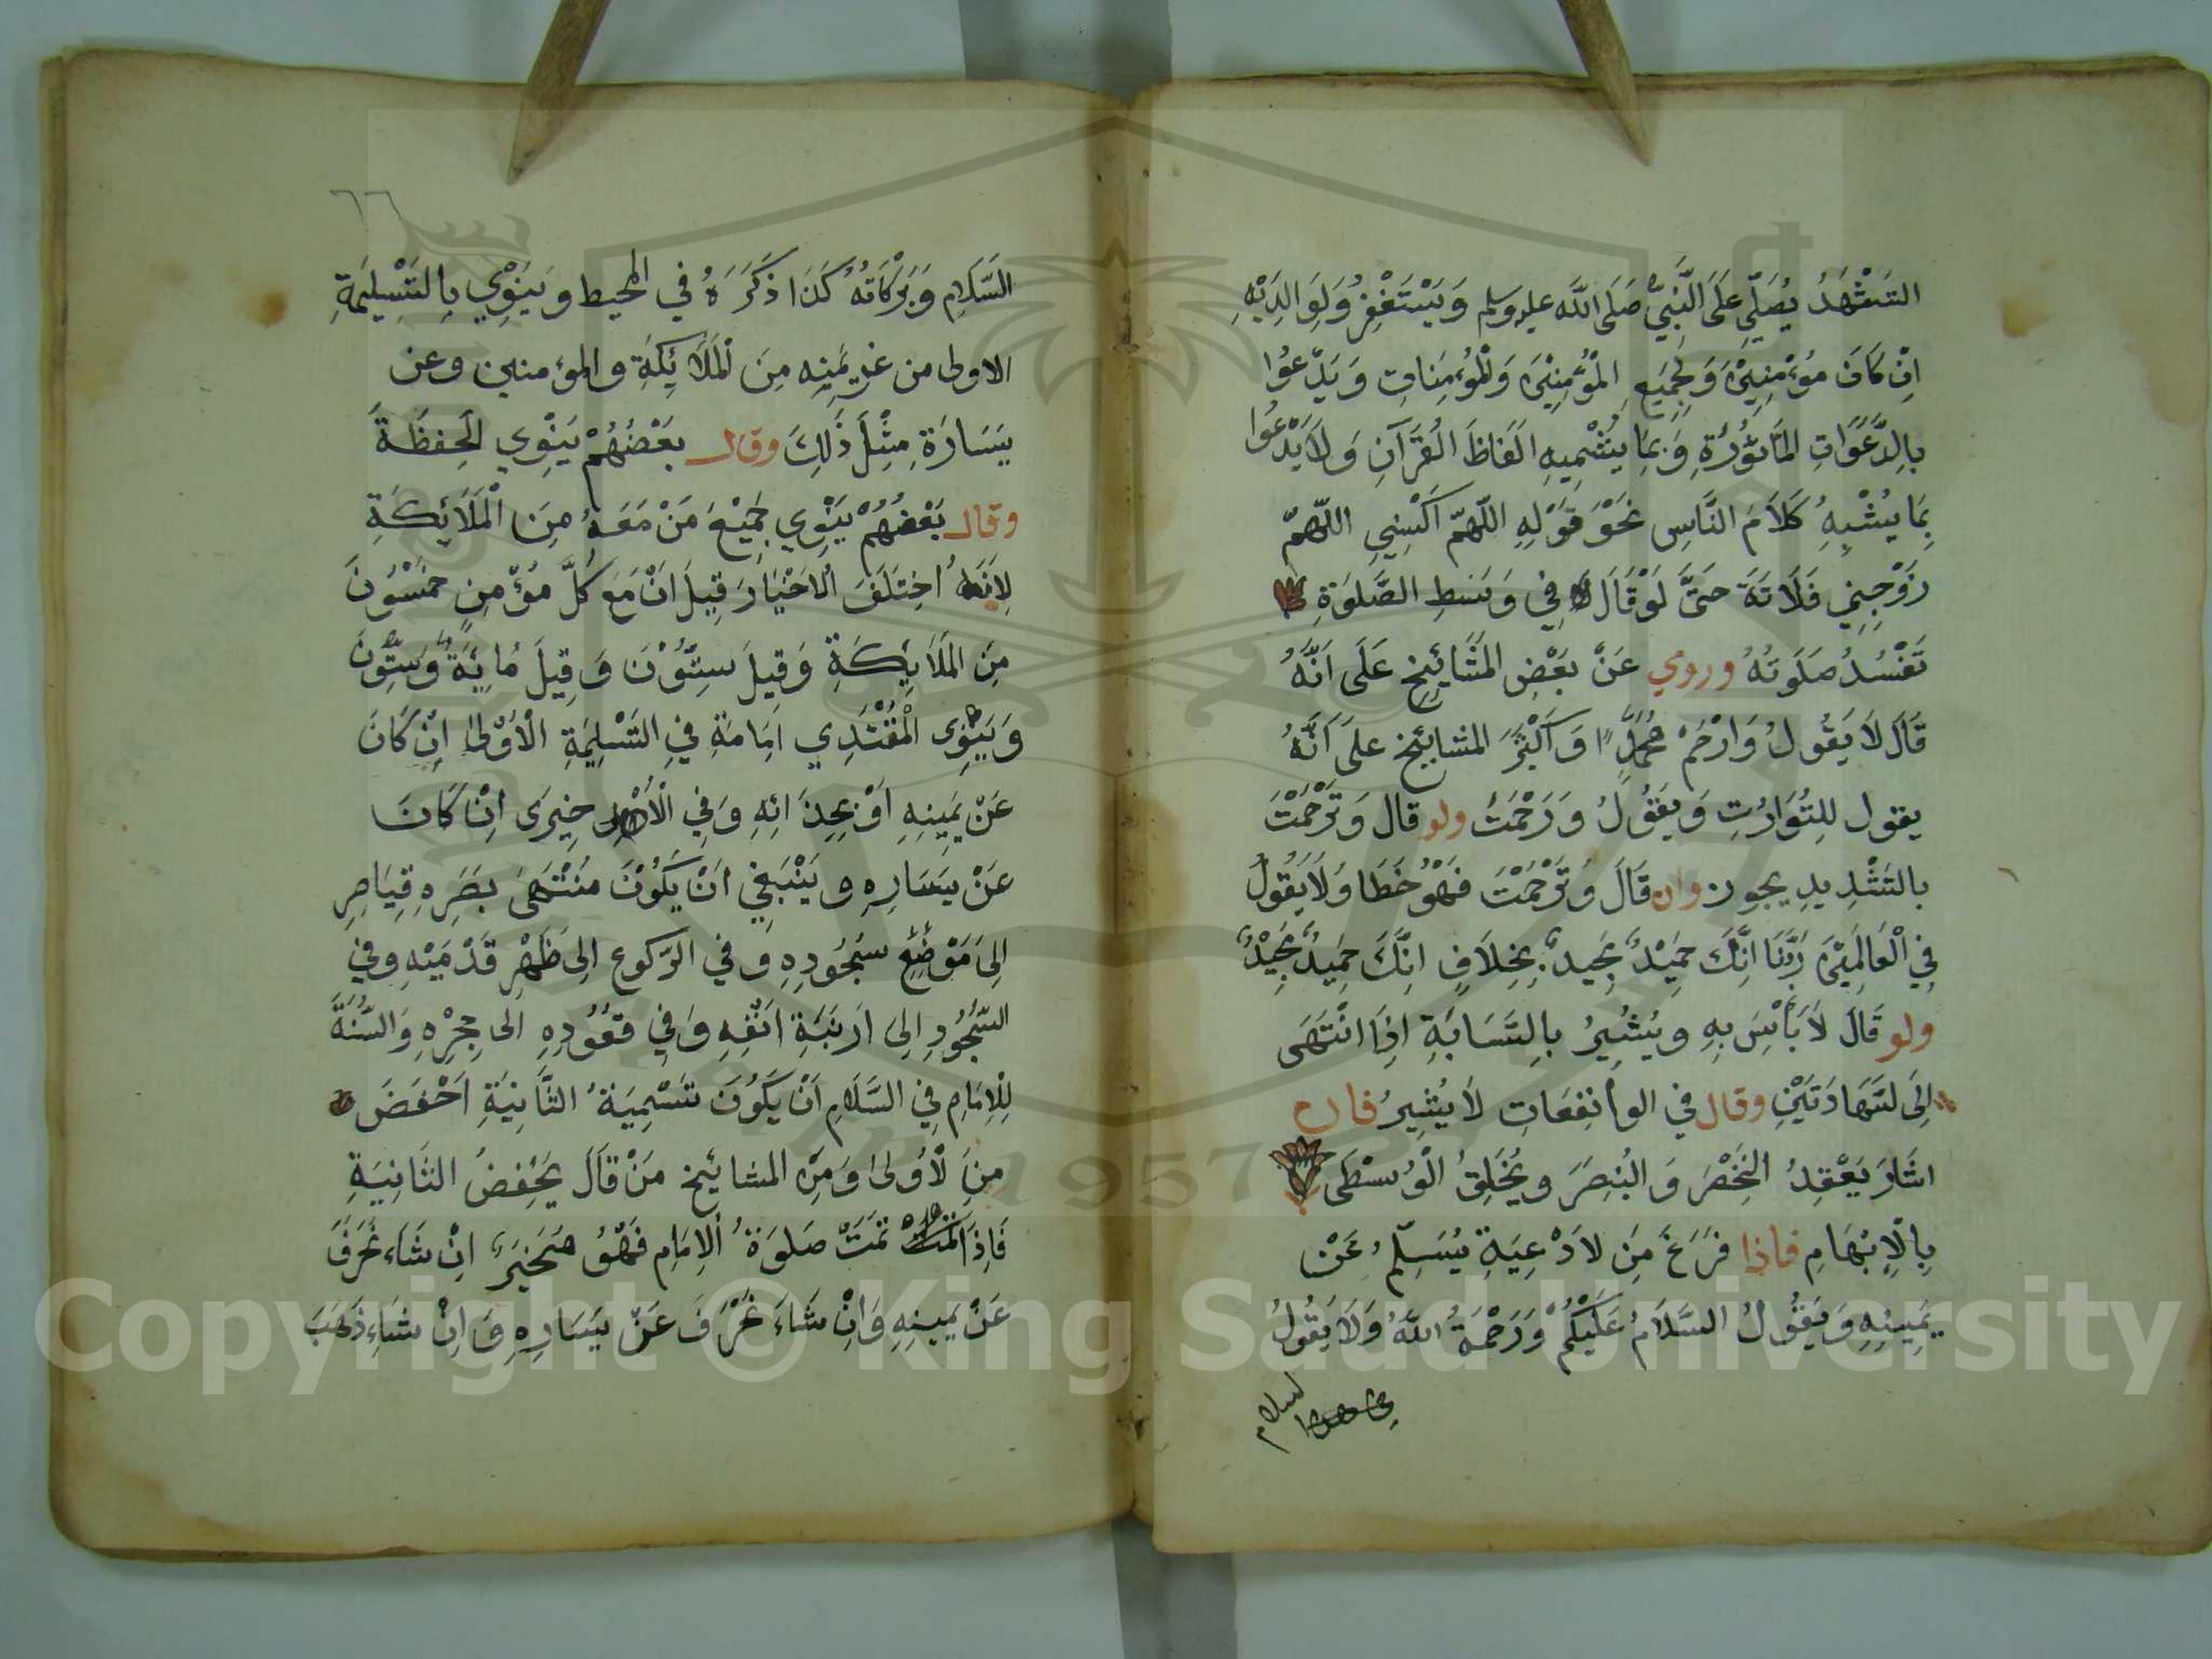 التَشَهُّدَ يُصَلِّي عَلَى النَّبِيِّ صَلَى اللَّه عليه وسلم وَيَسْتَغْفِرُ وَلِوَالِدَيْهِ
اِنْ كَانَ مُؤْمِنِيْنَ وَلِجَمِيَعِ الْمُؤْمِنِيْنَ وَالْمُؤْمِنَاتِ وَيَدْعُوا
بِالدَّعَوَاتِ الْمَأثُوْرَةِ وَبِمَا يُشْبِهِ اَلْفَاظَ الْقُرَآنِ وَلَا يَدْعُوا
بِمَا يُشْبِهُ كَلَامَ النَّاسِ نَحْوَ قَوْلِهِ اللّهمّ اَكْسِنِي اللّهمّ
زَوِّجِنِي فَلَانَةَ حَتَّى لَوْ قَالَ فِي وَسَطِ الصَّلوَةِ
تَفْسُدُ صَلَوتُهُ وروي عَنْ بَعْضِ المَشَائِخِ عَلَى اَنَّهُ
قَالَ لَا يَقُولُ وَارْحَمْ مُحَمَّدًا وَاَكْثَرُ المشايئخ عَلَى اَنَّهُ
يقول لِلتَّوَارُثِ وَيَقُولُ وَرَحْمَتَ ولو قال وَتَرَحَّمْتَ
بالتَشْدِيدِ يجوز وان قَالَ وَتَرْحَمْتَ فَهُوْ خَطَا وَلَا يَقُولُ
فِي الْعَالَمِيْنَ رَبَّنَا اِنَّكَ حَمِيْدٌ مَجِيد بِخِلَافِ اِنَّكَ حَمِيدٌ مَجِيْدٌ
ولو قَالَ لَا بَأْسَ بِهِ وَيُشِيْرُ بِالسَّبَابَةِ اِذَا انْتَهَى
اِلَى لشَّهَادَتَيْنِ وقال في الواٰقِعَاتِ لَا يُشِيرُ فان
اشَارَ يَعْقِدُ الْخَنْصَرَ وَالْبُنِصَرَ ويُحَلِّقُ الْوُسْطَى
بِالْاِبْهَامِ فاذا فَرَغَ مِنَ لاَدْعِيَةِ يُسَلِّمُ عَنْ
يَمِينِهِ وَيَقُولُ السَّلَامُ عَلَيْكُمْ وَرَحْمَةُ اللَّهُ وَلَا يَقُولُ
السلام
٦٦
السَّلَامِ وَبَرَكَاتُهُ كَذَا ذَكَرَهُ في المحيط ويَنْوِي بِالتَسْلِيمَةِ
الاولى من عن يَمَينِه مِنَ الْمَلَائِكَةِ والمؤمنين وعن
يَسَارِهِ مِثْلَ ذَلِكَ وقال بعْضُهُمْ يَنْوِي الْحَفَظَةَ
وقال بَعْضُهُمْ يَنْوِي جَمِيْعَ مَنْ مَعَهُ مِنَ الْمَلَائِكَةِ
لِاَنَّهُ اُخْتَلَفَ الْاخْبَارَ قِيلَ اَنْ مَعَ كُلَّ مُؤْمِنٍ خَمْسُوْنَ
مِنَ المَلَائِكَةِ وَقِيلَ سِتُّوْنَ وَقِيلَ مِايَةَ وَسِتُّونَ
وَيَنْوِى الْمُقْتَدِي اِمَامَهُ فِي التَسْلِيمَةِ الْاُوْلَى اِنْ كَانَ
عَنْ يَمِينِهِ اَوْ بِحِذَائِهِ وَفِي الْاُخْرَى اِنْ كَانَ
عَنْ يَسَارِهِ وَيَنْبَغِي اَنْ يَكُوْنَ مُنْتَهَى بَصَرِهِ قِيَامِهِ
اِلَى مَوْضِعِ سُجُودِهِ وَفي الرّكوع اِلى ظَهْرِ قَدَمَيْهِ وفي
السُّجُودِ اِلى اَرنَبَةِ اَنْفِهِ وَفِي قُعُوْدِهِ اِلى حِجْرِهِ وَالسُّنَّةَ
لِلْاِمَامِ فِي السَّلَامِ اَنْ يَكُونَ تَسْمِيَةُ الثَّانِيَةِ اَخْفَضَ
مِنَ لْاُولى وَمِنْ المشايئخ مَنْ قَالَ يَخْفِضُ الثَّانِيَةِ
فَاِذَا تَمَّتْ صَلَوَةُ اْلاِمَامِ فَهُوُ مُخَيَّر اِنْ شَاءَ
عَنْ يَمِينِهِ وَاِنْ شَاءَ عَنْ يَسَارِهِ وَاِنْ شَاءَ ذَهَبَ
Copyright © King Saud University
1957